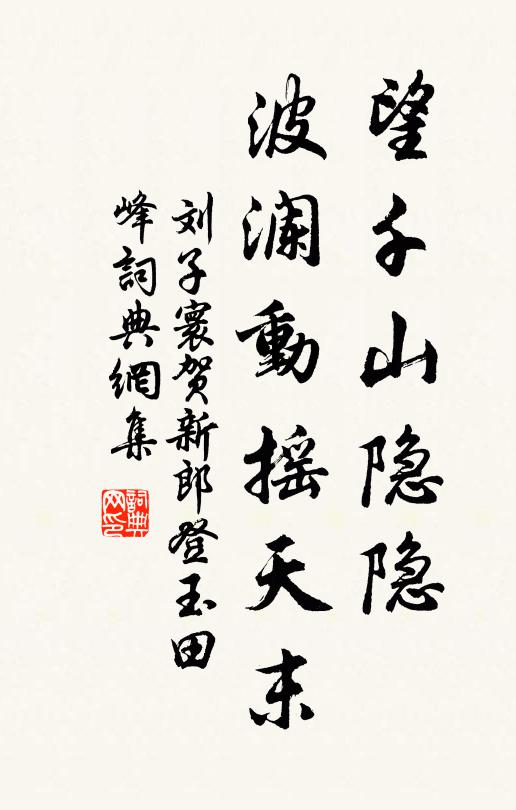 望千山隐隐
波澜動摇天末
刘子寰贺新郎登玉田
峰詞典網集
詞典
网印